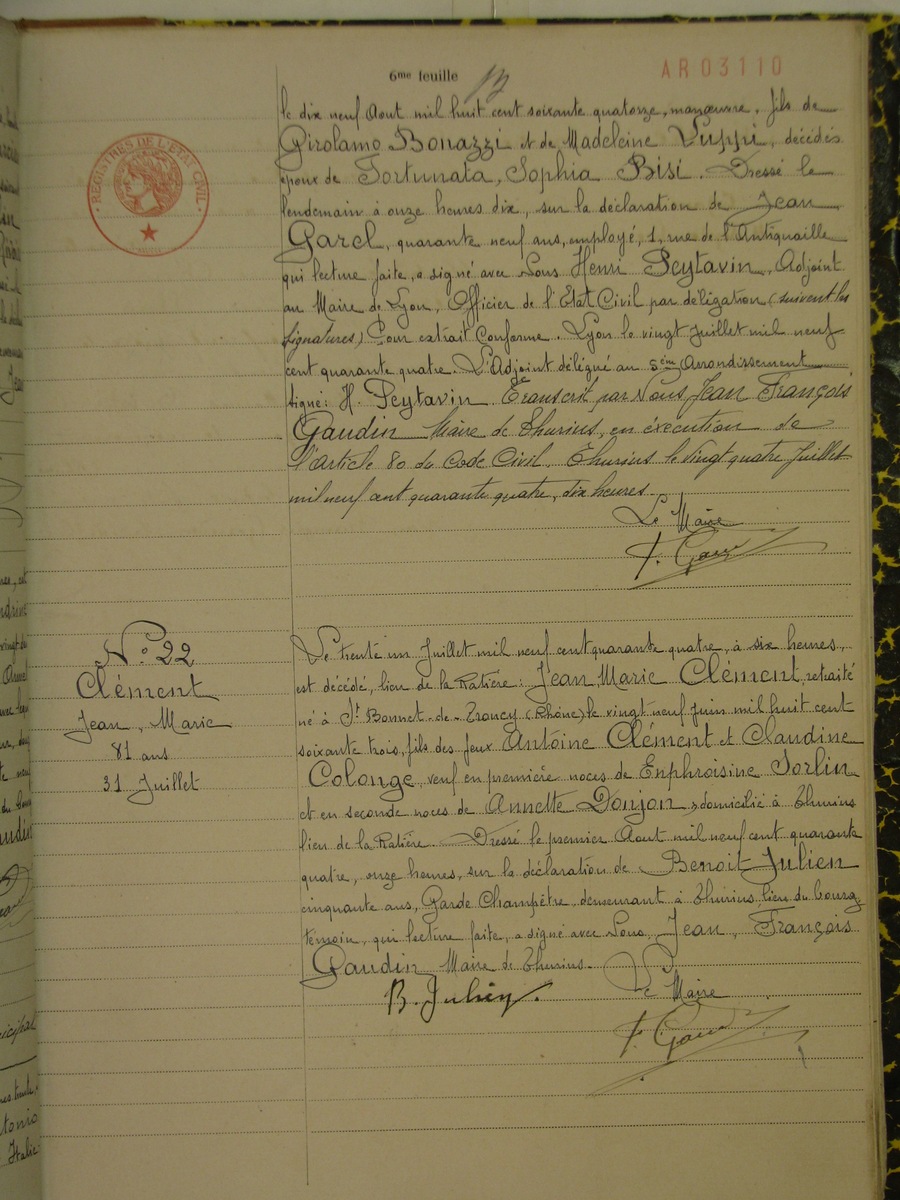 6me feuille
AR 03110
REGISTRES DE L'ETAT CIVIL
le dix neuf Aout mil huit cent soixante quatorze, manœuvre. fils de
Girolamo Bonazzi et de Madeleine Luppi, décédés
époux de Fortunata, Sophia Bisi. Dressé le
lendemain à onze heures dix, sur la déclaration de Jean
Garel, quarante neuf ans, employé, 1, rue de l'Antiquaille
qui lecture faite, a signé avec Nous Henri Peytavin, Adjoint
au Maire de Lyon, Officier de l'Etat Civil par délégation (suivent les
signatures) Pour extrait Conforme. Lyon le vingt Juillet mil neuf
cent quarante quatre. L'Adjoint délégué au 5eme Arrondissement
signé: H. Peytavin. Transcrit par Nous Jean François
Gaudin Maire de Thurins, en éxécution de
l'article 80 du Code Civil. Thurins le vingt quatre Juillet
mil neuf cent quarante quatre, dix heures.
Le Maire
N° 22
Clément
Jean, Marie
81 ans
31 Juillet
Le trente un Juillet mil neuf cent quarante quatre, à six heures,
est décédé, lieu de la Ratière: Jean Marie Clément retraité
né à St Bonnet-de-Troncy (Rhône) le vingt neuf Juin mil huit cent
soixante trois, fils des feux Antoine Clément et Claudine
Colonge, veuf en première noces de Enphroisine Sorlin
et en seconde noces de Annette Donjon, domicilié à Thurins
lieu de la Ratière. Dressé le premier Aout mil neuf cent quarante
quatre, onze heures, sur la déclaration de Benoit Julien
cinquante ans, Garde Champêtre, demeurant à Thurins, lieu du bourg,
témoin, qui lecture faite, a signé avec Nous, Jean, François
Gaudin Maire de Thurins.
B. Julien. Le Maire